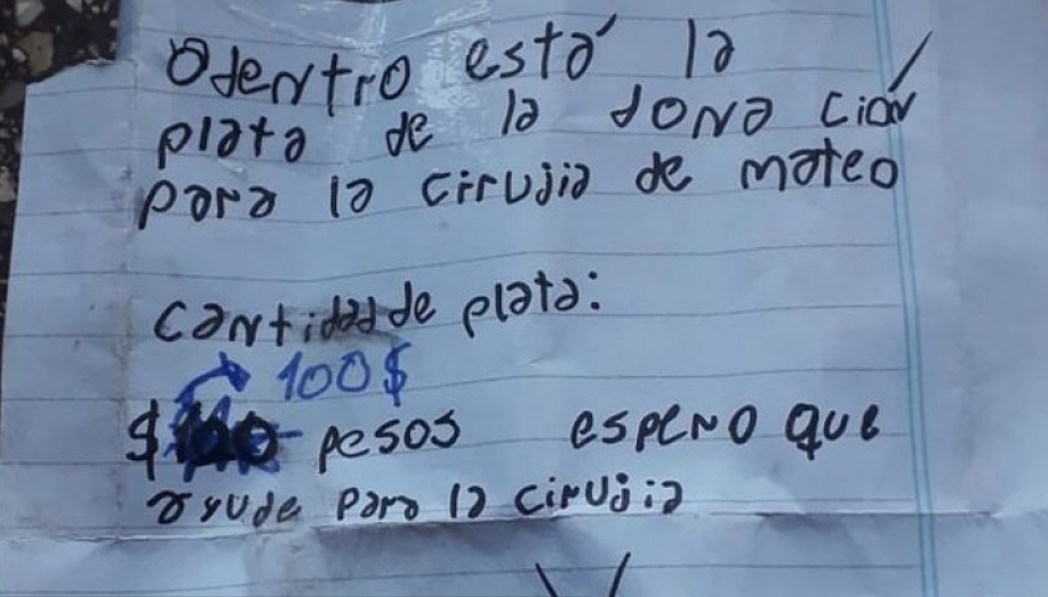 Adentro está la
plata de la dona ción
para la cirujia de mateo
cantidad de plata:
100$
$100 pesos espero que
ayude para la cirujia